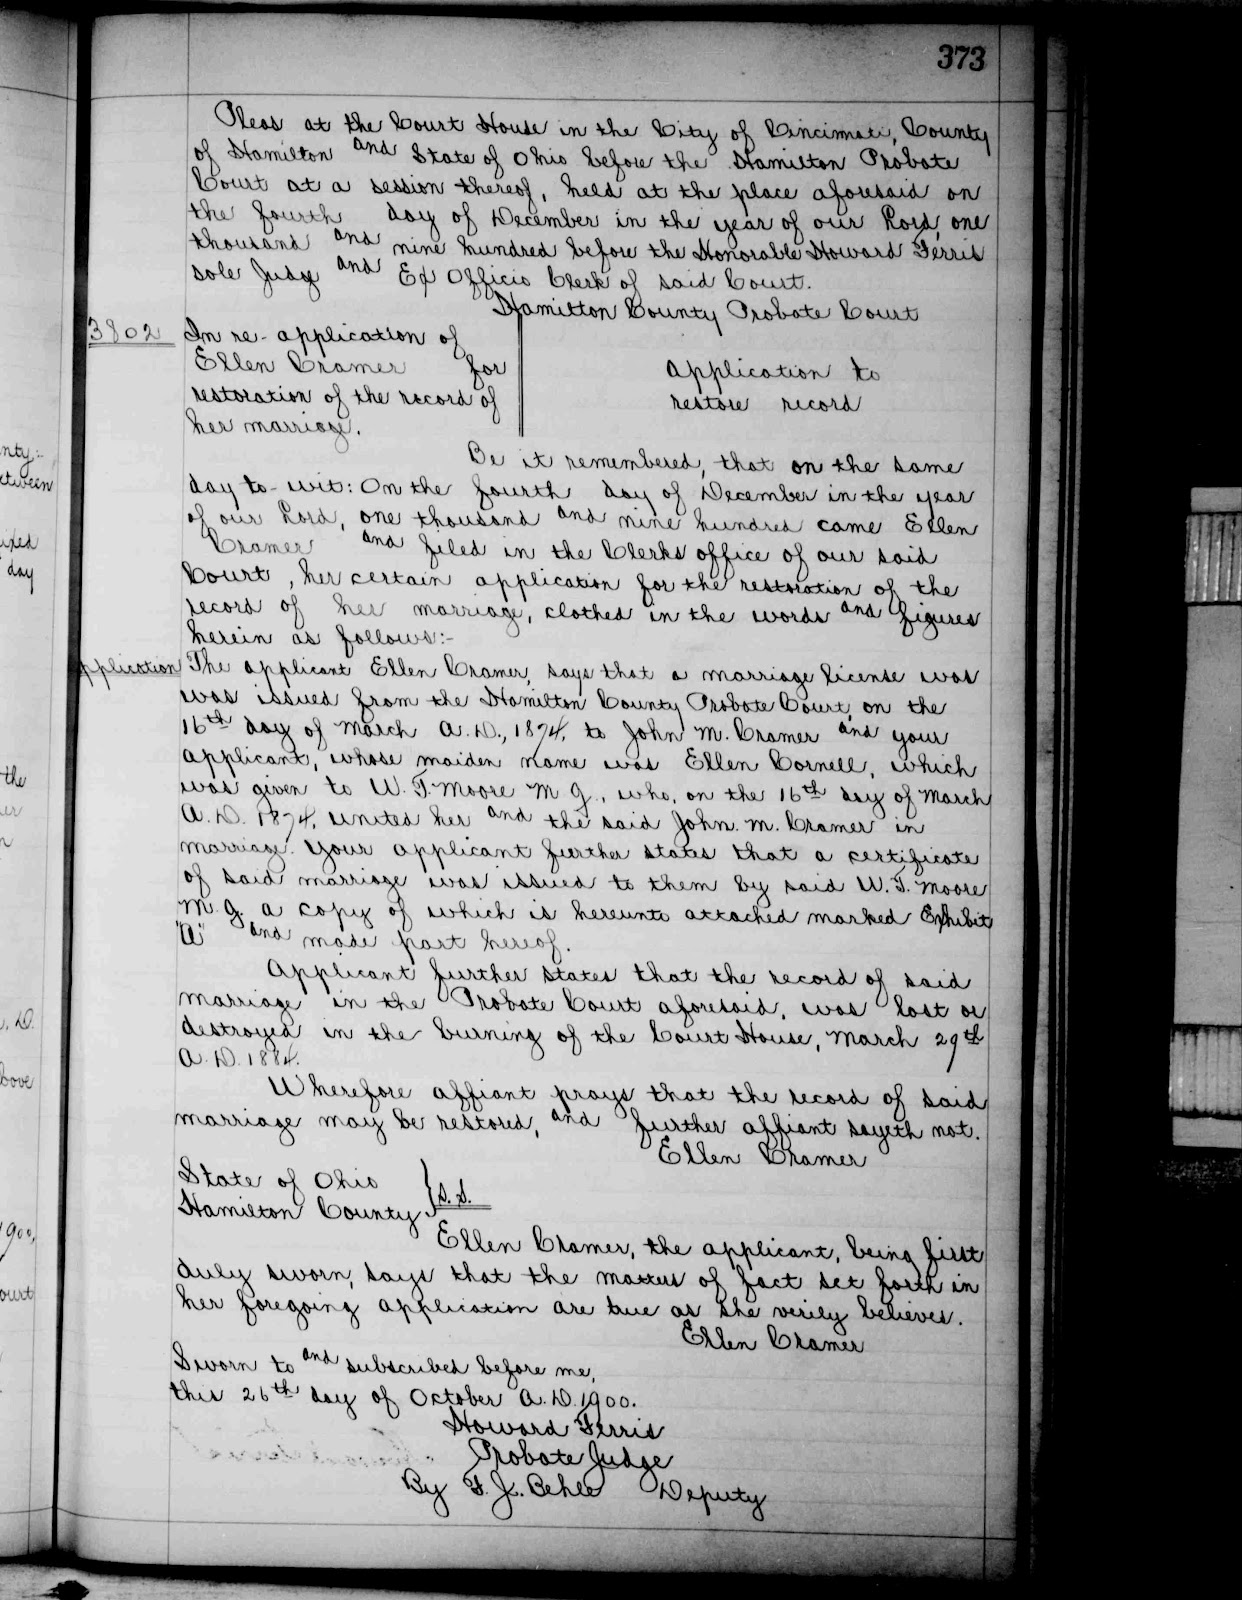 373
Pleas at the Court House in the City of Cincinnati, County
of Hamilton and State of Ohio before the Hamilton Probate
Court at a session thereof, held at the place aforesaid on
the fourth day of December in the year of our Lord, one
thousand and nine hundred before the Honorable Howard Ferris
sole Judge and Ex Officio Clerk of said Court.
Hamilton County Probate Court
3802
In re- application of
Ellen Cramer for
restoration of the record of
her marriage.
application to
restore record
Be it remembered, that on the same
day to-wit: On the fourth day of December in the year
of our Lord, one thousand and nine hundred came Ellen
Cramer and filed in the Clerks office of our said
Court, her certain application for the restoration of the
record of her marriage, clothed in the words and figures
herein as follows:-
application The applicant Ellen Cramer, says that a marriage license was
was issued from the Hamilton County Probate Court, on the
16th day of March A.D., 1874, to John M. Cramer and your
applicant, whose maiden name was Ellen Cornell, which
was given to W. T. Moore M. G., who, on the 16th day of March
A.D. 1874, united her and the said John. M. Cramer in
marriage. Your applicant further states that a certificate
of said marriage was issued to them by said W. T. Moore
M. G. a copy of which is hereunto attached marked Exhibit
"A" and made part hereof.
Applicant further states that the record of said
marriage in the Probate Court aforesaid, was lost or
destroyed in the burning of the Court House, March 29th
A.D. 1884.
Wherefore affiant prays that the record of said
marriage may be restored, and further affiant sayeth not.
Ellen Cramer
State of Ohio
Hamilton County } S.S.
Ellen Cramer, the applicant, being first
duly sworn, says that the matters of fact set forth in
her foregoing application are true as she verily believes.
Ellen Cramer
Sworn to and subscribed before me,
this 26th day of October A.D. 1900.
Howard Ferris
Probate Judge
By F. J. Behle Deputy